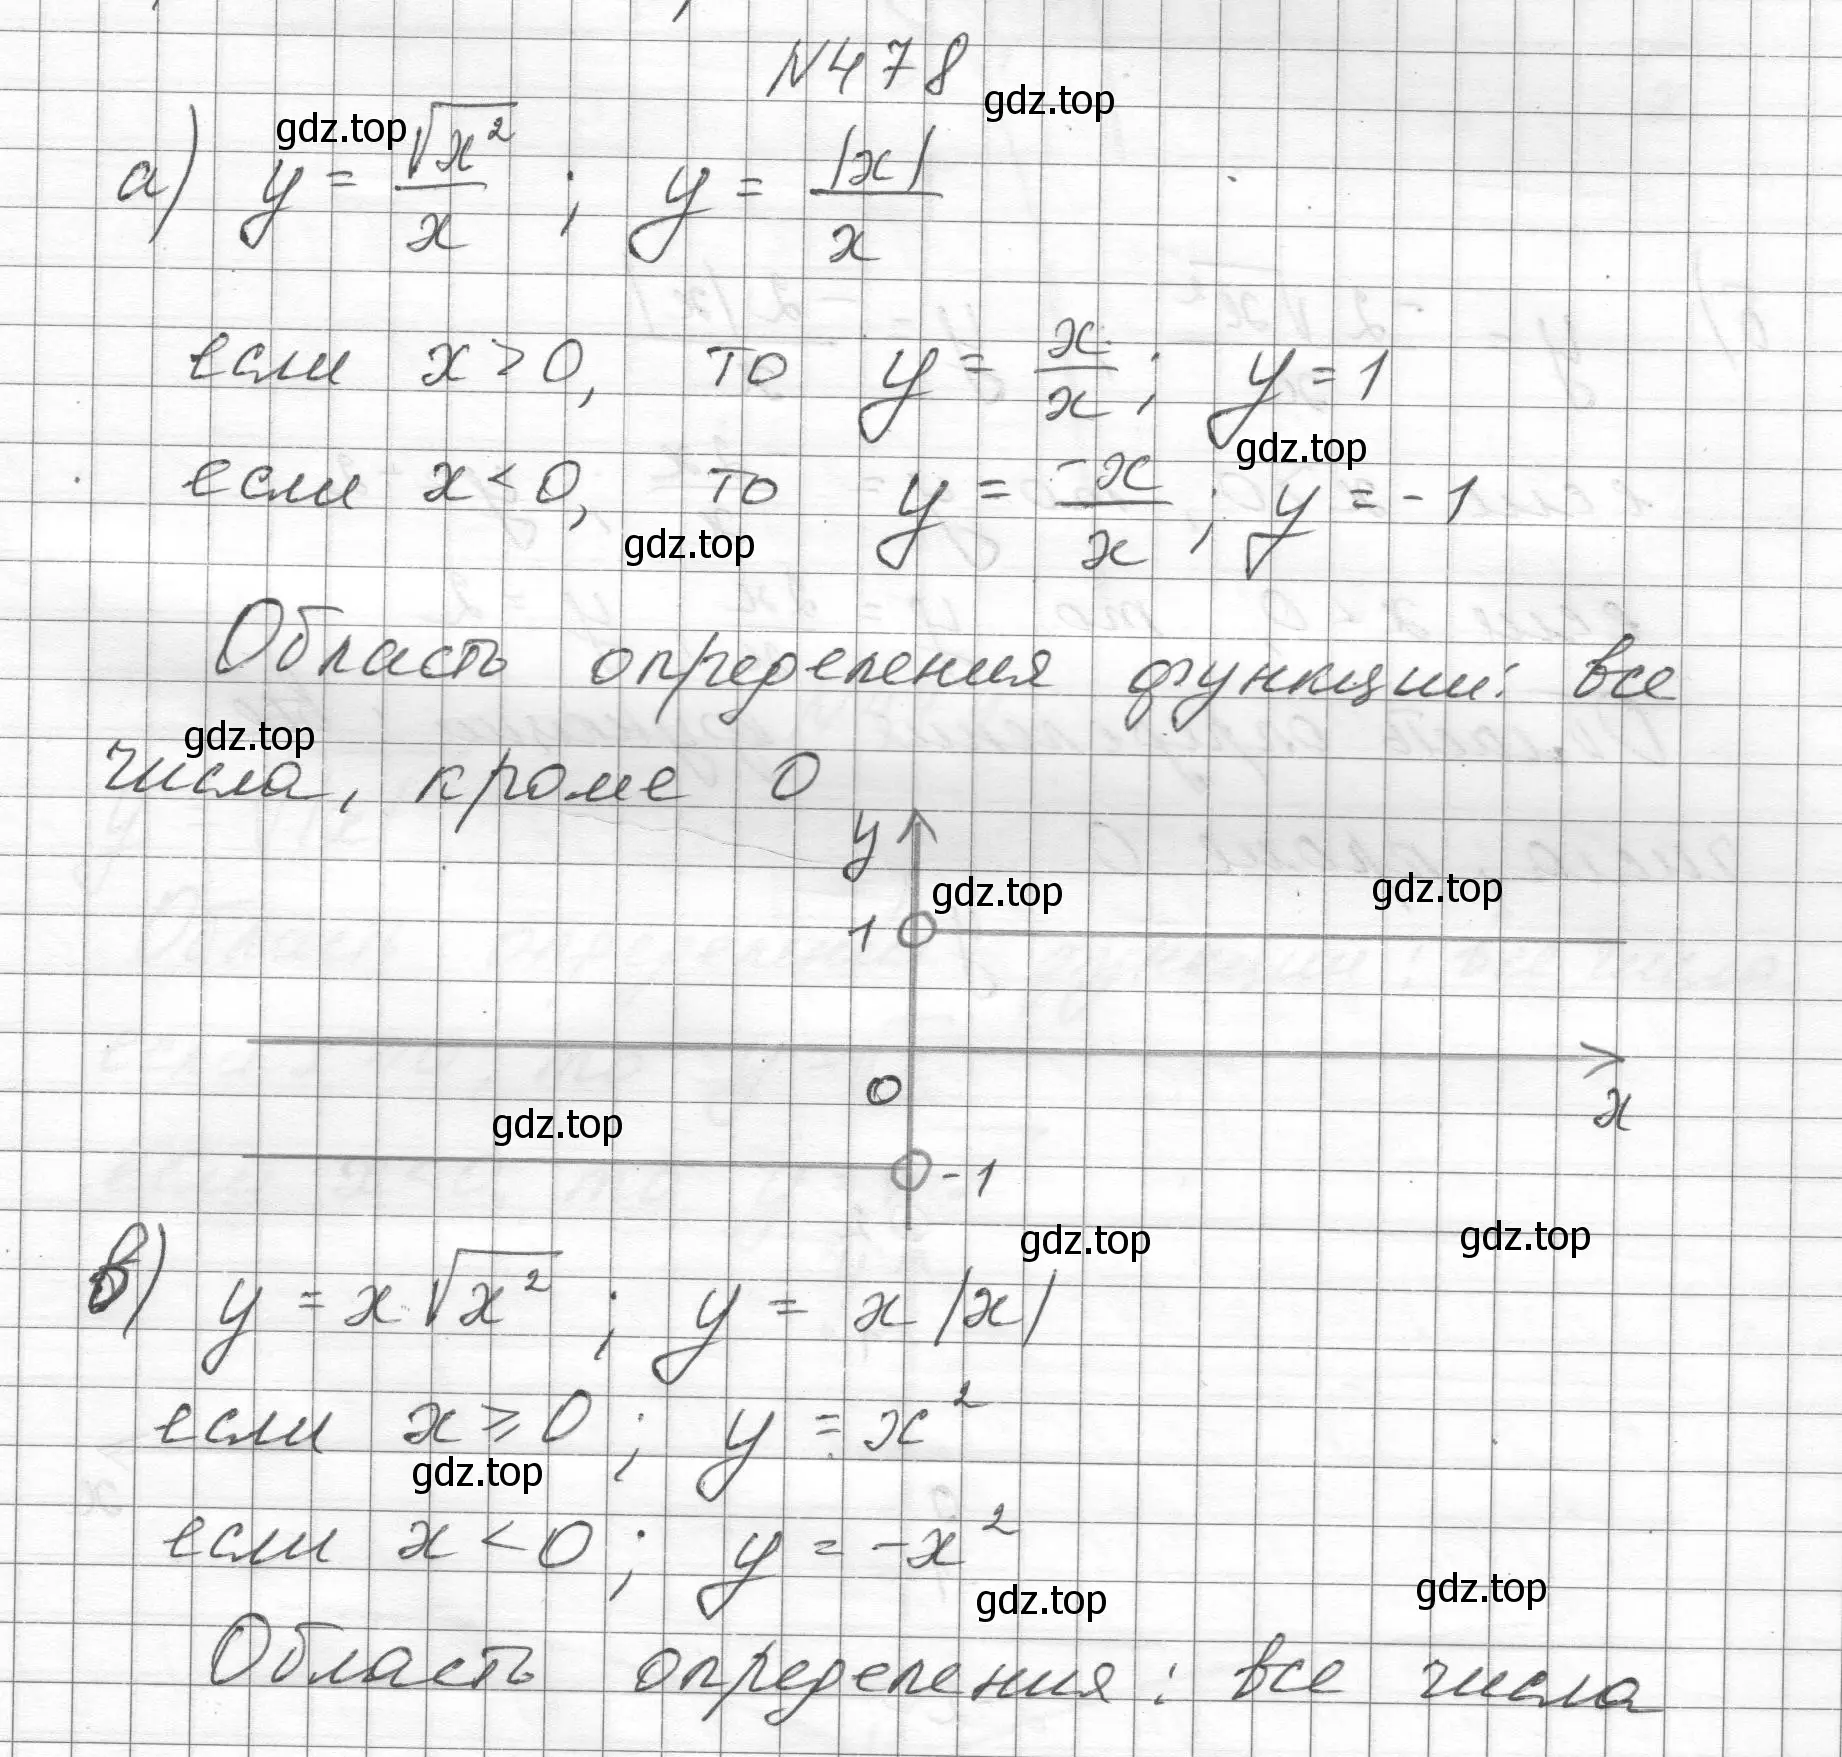 N478
gdz.top
gdz.top
а) y = √x² / x ; y = |x| / x
если x > 0, то y = x / x ; y = 1
gdz.top
если x < 0, то y = -x / x ; y = -1
gdz.top
Область определения функции: все
gdz.top
числа, кроме 0
y
gdz.top
gdz.top
1
0
x
gdz.top
-1
gdz.top
gdz.top
в) y = x √x² ; y = x |x|
если x ≥ 0 ; y = x²
gdz.top
если x < 0 ; y = -x²
gdz.top
gdz.top
Область определения : все числа